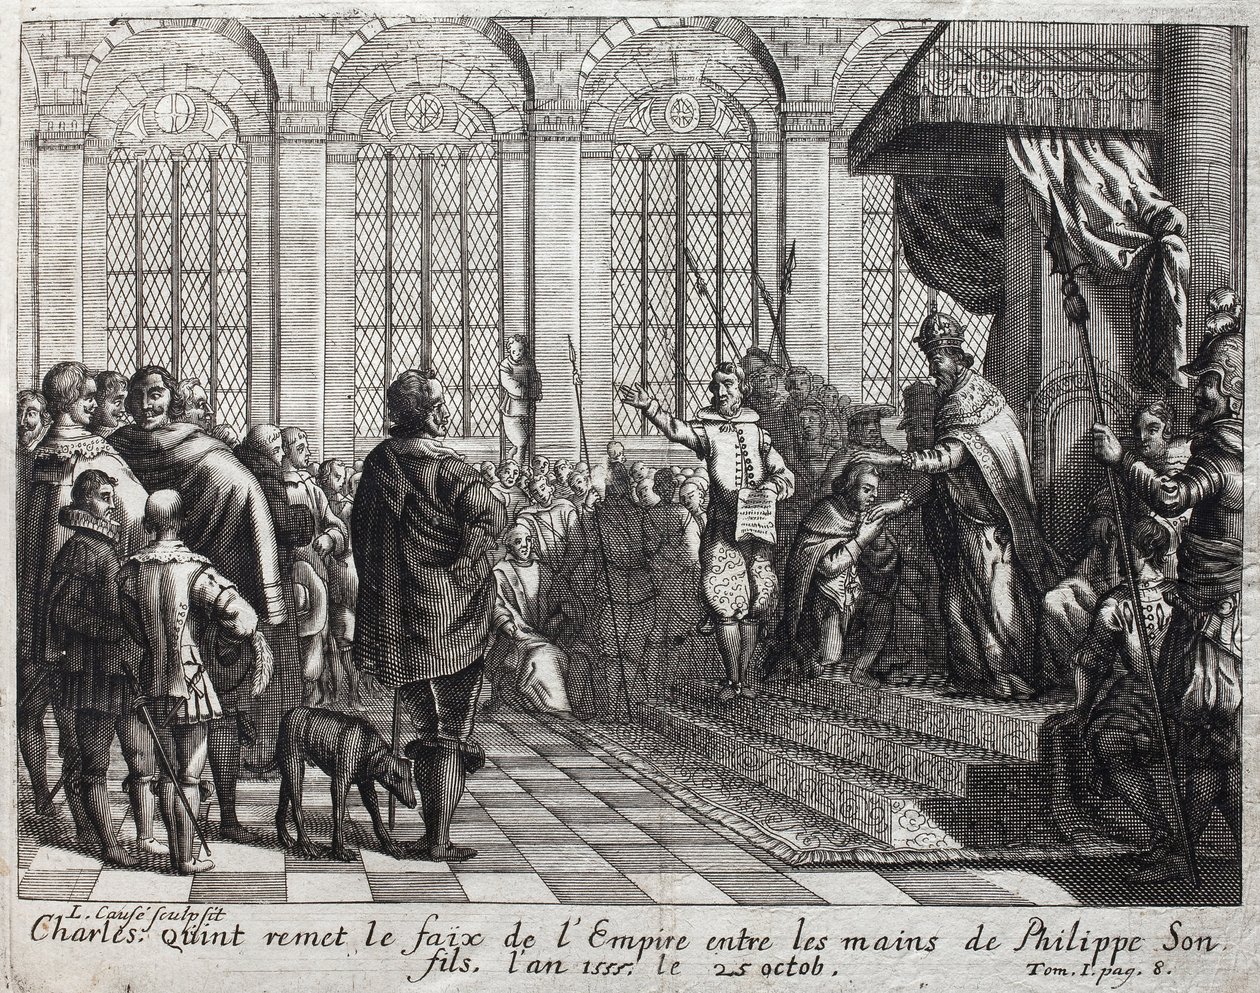 L. Causé sculpsit
Charles: Quint remet le faix de l'Empire entre les mains de Philippe Son
fils. l'an 1555. le 25 octob. Tom. I. pag. 8.